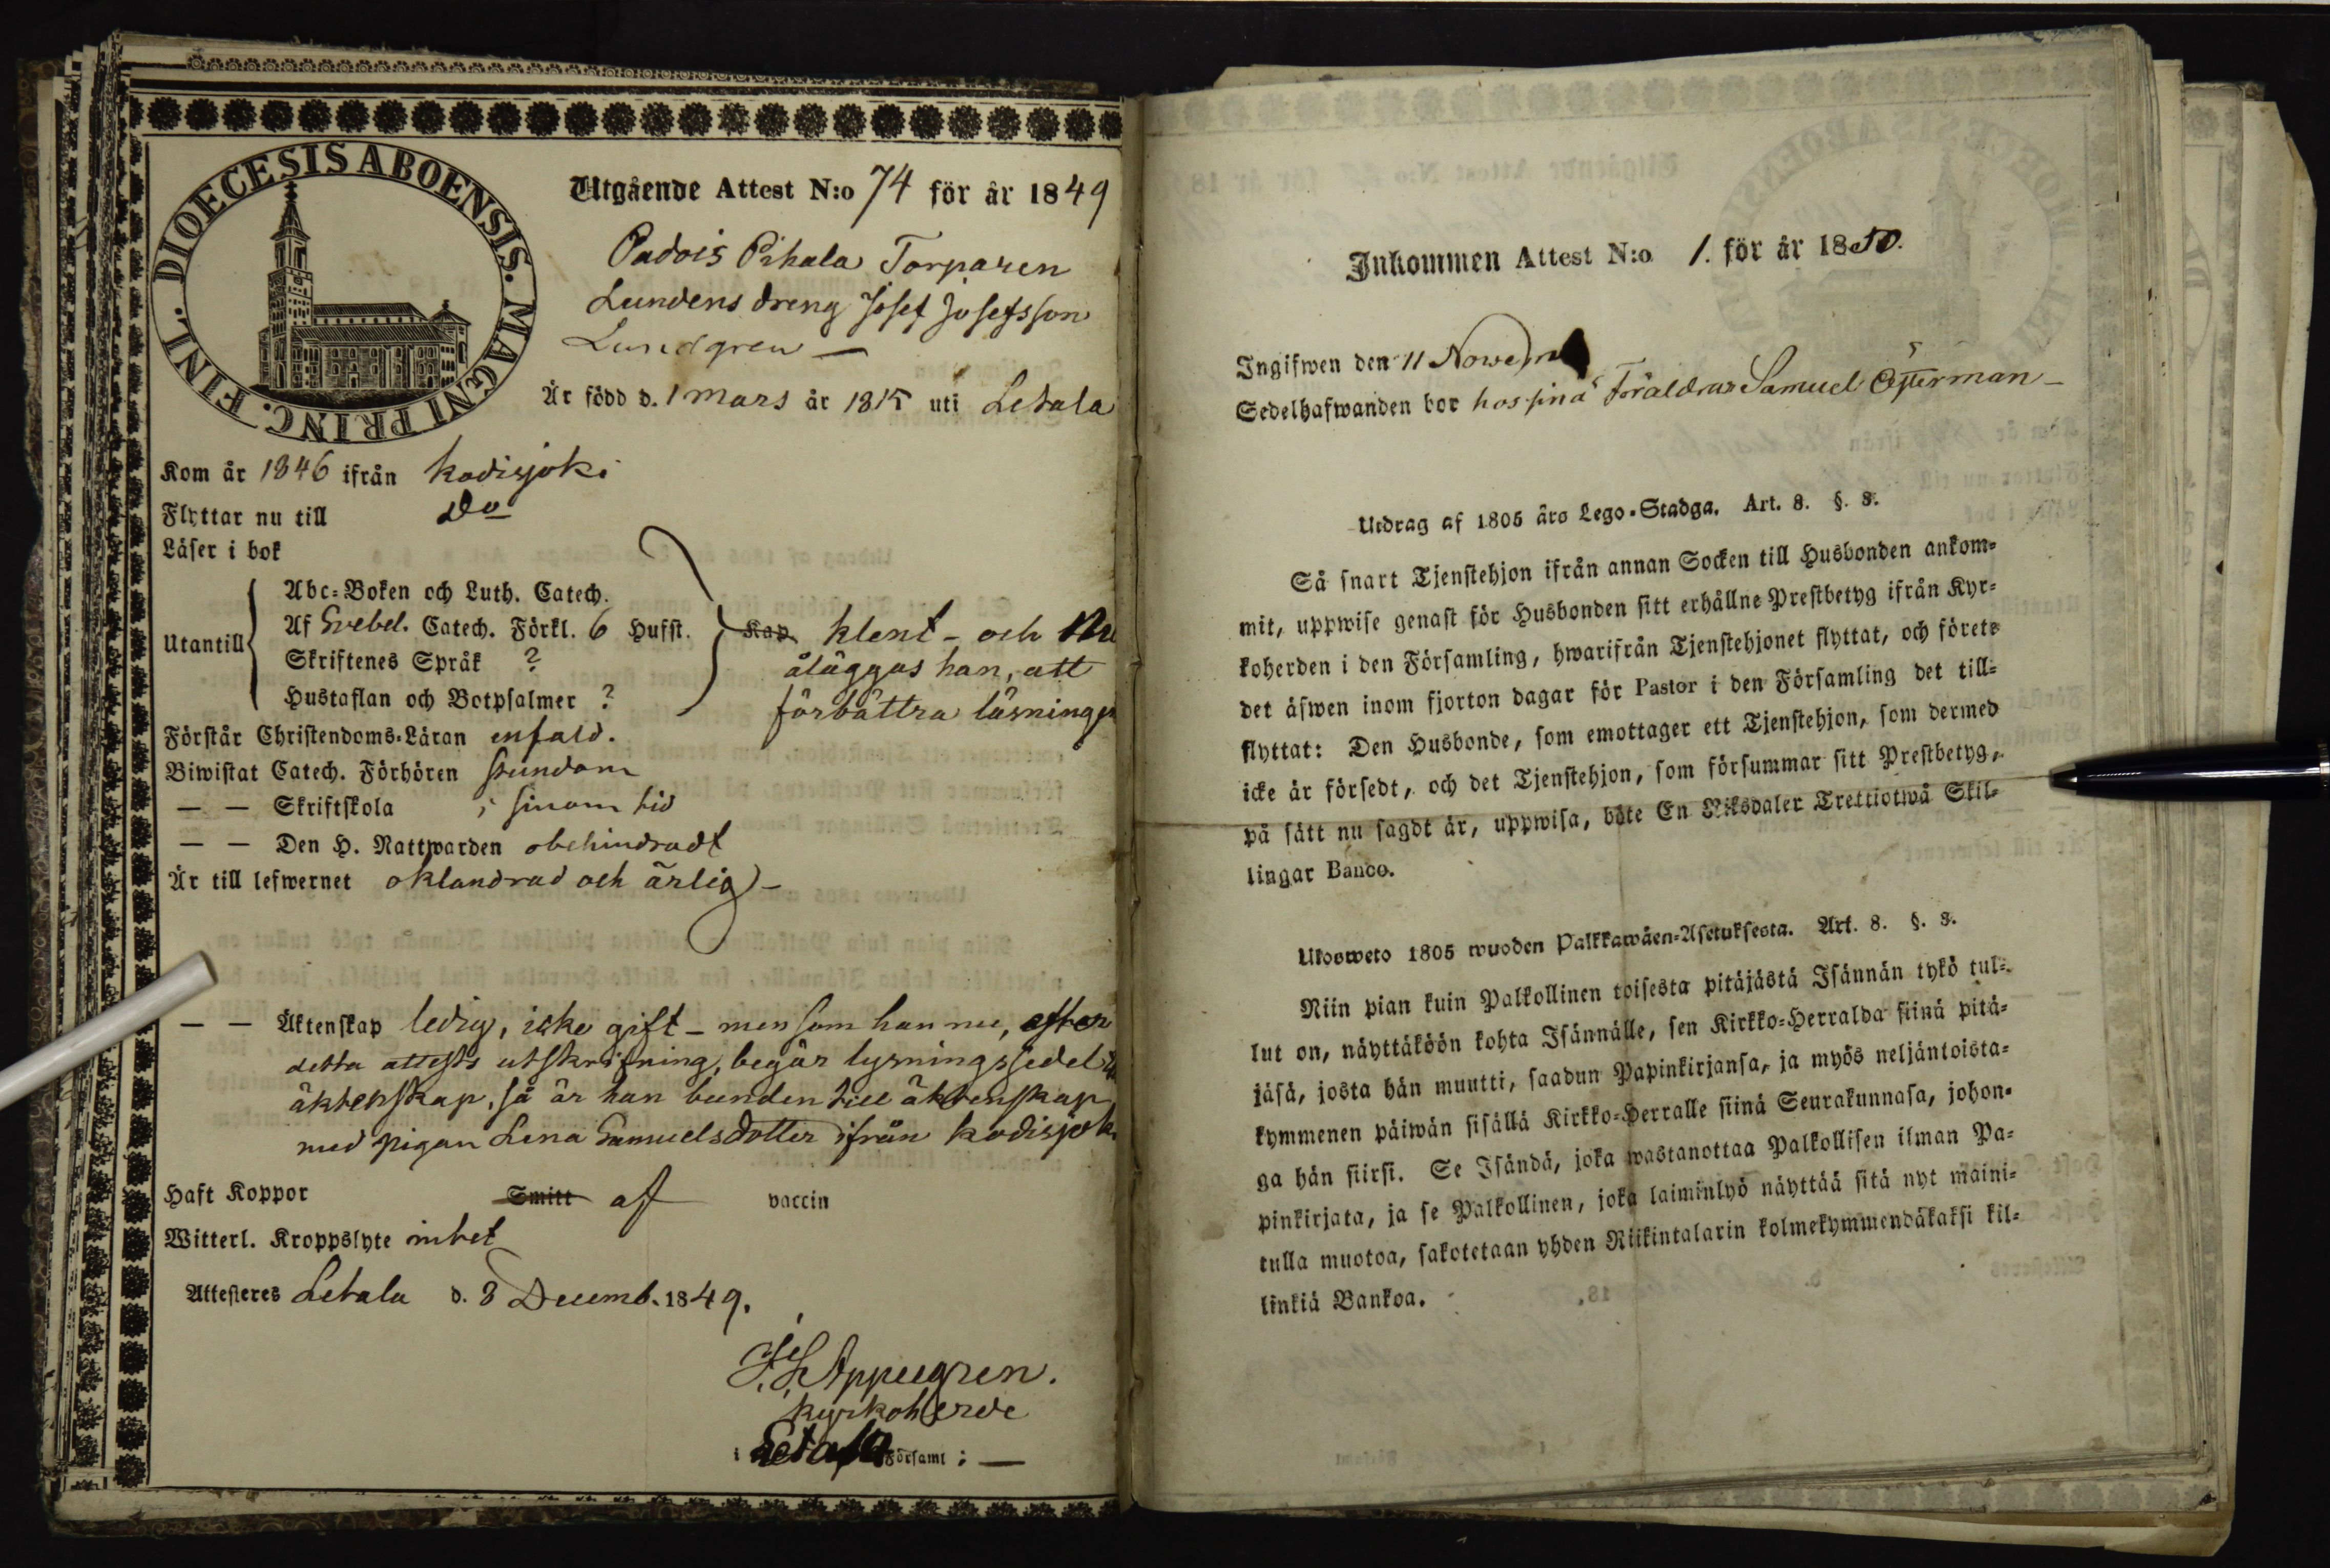 DIOECESIS ABOENSIS. MAGNI PRINC. FINL.
Utgående Attest N:o 74 för år 1849
Padois Pihala Torparen
Lundens dreng Josef Josefsson
Lundgren —
Är född d. 1 mars år 1815 uti Letala
Kom år 1846 ifrån Kodisjoki
Flyttar nu till Do
Läser i bok
Utantill
Abc-Boken och Luth. Catech.
Af Svebel. Catech. Förkl. 6 Hufst.
Skriftenes Språk ?
Hustaflan och Botpsalmer ?
Kap. klent - och
åläggas han, att
förbättra läsningen
Förstår Christendoms-Läran enfald.
Biwistat Catech. Förhören stundom
— — Skriftskola i sinom tid
— — Den H. Nattwarden obehindradt
Är till lefwernet oklandrad och ärlig -
— — Äktenskap ledig, icke gift - men som han nu, efter
detta attests utskrifning, begär lysningssedel
äktenskap, så är han bunden till äktenskap
med pigan Lena Samuelsdotter ifrån Kodisjoki
Haft Koppor Smitt af vaccin
Witterl. Kroppslyte intet
Attesteres Letala d. 8 Decemb. 1849.
Appelgren.
Kyrkoherde
i Letala Församl: —
Inkommen Attest N:o 1. för år 1850.
Ingifwen den 11 Novemb
Sedelhafwanden bor hos sina Föräldrar Samuel Österman -
Utdrag af 1805 års Lego-Stadga. Art. 8. §. 3.
Så snart Tjenstehjon ifrån annan Socken till Husbonden ankom-
mit, uppwise genast för Husbonden sitt erhållne Prestbetyg ifrån Kyr-
koherden i den Församling, hwarifrån Tjenstehjonet flyttat, och förete
det äfwen inom fjorton dagar för Pastor i den Församling det till-
flyttat: Den Husbonde, som emottager ett Tjenstehjon, som dermed
icke är försedt, och det Tjenstehjon, som försummar sitt Prestbetyg,
på sätt nu sagdt är, uppwisa, böte En Riksdaler Trettiotwå Skil-
lingar Banco.
Ulosweto 1805 wuoden Palkkawäen-Asetuksesta. Art. 8. §. 3.
Niin pian kuin Palkollinen toisesta pitäjästä Isännän tykö tul-
lut on, näyttäköön kohta Isännälle, sen Kirkko-Herralda siinä pitä-
jäsä, josta hän muutti, saadun Papinkirjansa, ja myös neljäntoista-
kymmenen päiwän sisällä Kirkko-Herralle siinä Seurakunnasa, johon-
ga hän siirsi. Se Isändä, joka wastanottaa Palkollisen ilman Pa-
pinkirjata, ja se Palkollinen, joka laiminlyö näyttää sitä nyt maini-
tulla muotoa, sakotetaan yhden Riikintalarin kolmekymmendäkaksi kil-
linkiä Bankoa.